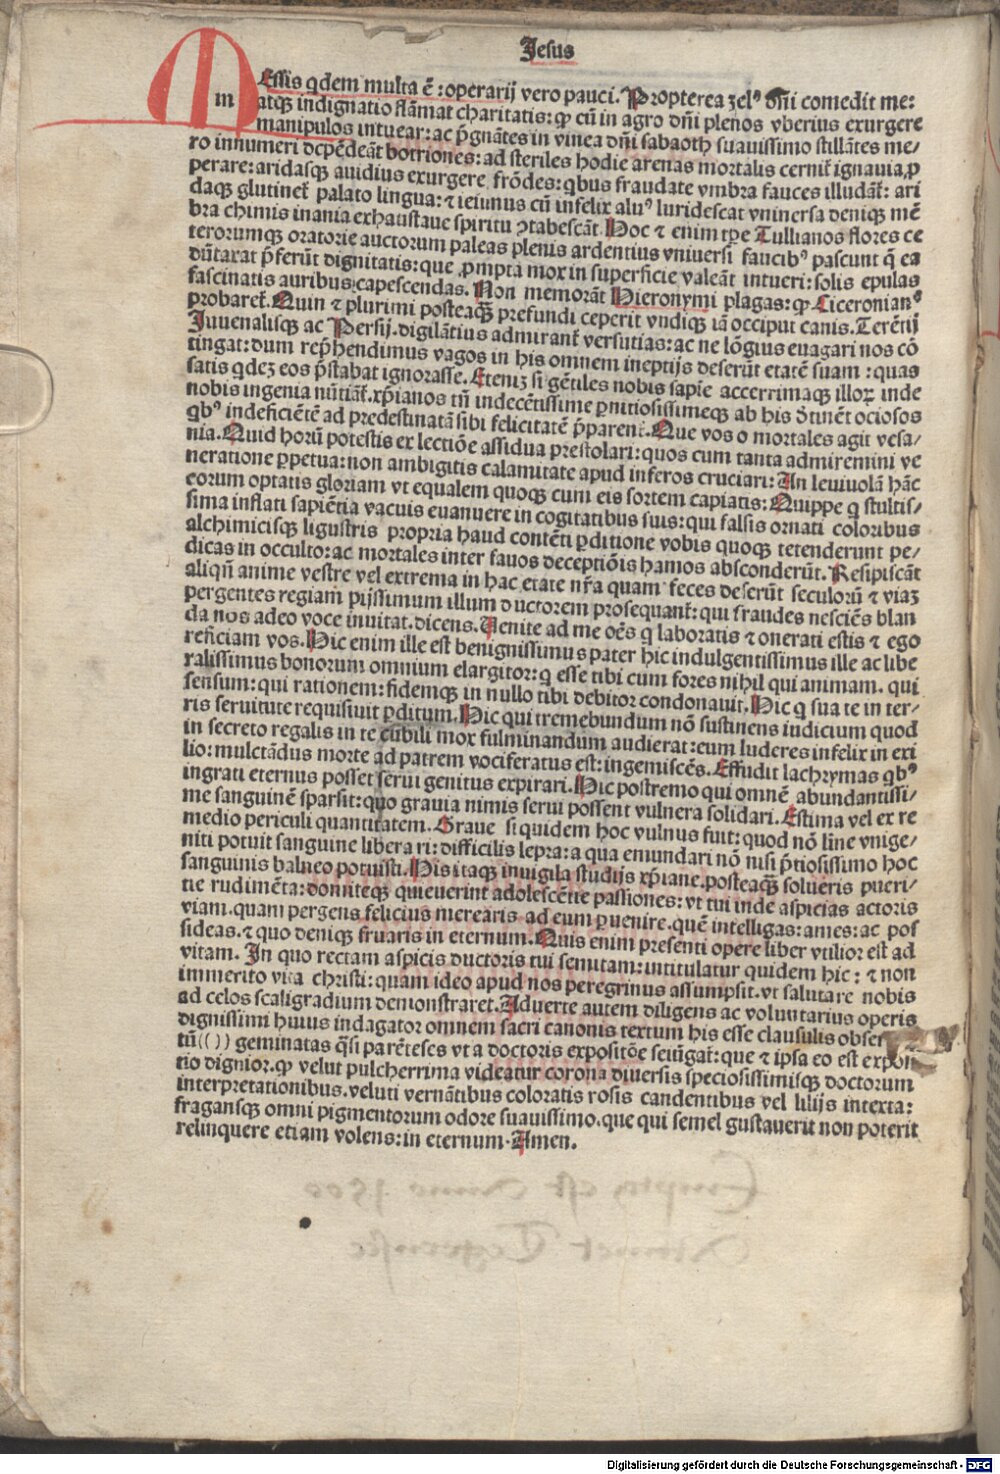 Jesus
m Essis qdem multa ē : operarij vero pauci. Propterea zelꝰ dñi comedit me:
atqꝫ indignatio flāmat charitatis: qꝫ cū in agro dñi plenos vberius exurgere
manipulos intuear: ac p̄gnātes in vinea dñi sabaoth suauissimo stillātes me/
ro innumeri depēdeāt botriones: ad steriles hodie arenas mortalis cernit᷑ ignauia ꝓ
perare: aridasqꝫ auidius exurgere frōdes: qbus fraudate vmbra fauces illudāt᷑: ari
daqꝫ glutinet᷑ palato lingua: ⁊ ieiunus cū infelix aluꝰ luridescat vniuersa deniqꝫ mē
bra chimis inania exhaustaue spiritu ꝯtabescāt. Hoc ⁊ enim tꝑe Tullianos flores ce
terorumqꝫ oratorie auctorum paleas plenis ardentius vniuersi faucibꝰ pascunt q̄ ea
dūtaxat p̄ferūt dignitatis: que ꝓmpta mox in superficie valeāt intueri: solis epulas
fascinatis auribus capescendas. Non memorāt Hieronymi plagas: qꝫ Ciceronianꝰ
probaret᷑. Quin ⁊ plurimi posteaqꝫ prefundi ceperit vndiqꝫ iā occiput canis. Terētij
Juuenalisqꝫ ac Persij. digilātius admirant᷑ versutias: ac ne lōgius euagari nos cō
tingat: dum rep̄hendimus vagos in his omnem ineptijs deserūt etatē suam : quas
satis qdeꝫ eos p̄stabat ignorasse. Eteniꝫ si gētiles nobis sapie accerrimaqꝫ illoꝝ inde
nobis ingenia nūtiāt᷑. xp̄ianos tn̄ indecētissime ꝑnitiosissimeqꝫ ab his ꝺtinēt ociosos
qbꝰ indeficiētē ad predestinatā sibi felicitatē p̄parent᷑. Que vos o mortales agit vesa/
nia. Quid horū potestis ex lectiōe assidua prestolari: quos cum tanta admiremini ve
neratione ꝑpetua: non ambigitis calamitate apud inferos cruciari: An leuiuolā hāc
eorum optatis gloriam vt equalem quoqꝫ cum eis sortem capiatis: Quippe q stultis/
sima inflati sapiētia vacuis euanuere in cogitatibus suis: qui falsis ornati coloribus
alchimicisqꝫ ligustris propria haud contēti ꝑditione vobis quoqꝫ tetenderunt pe/
dicas in occulto: ac mortales inter fauos deceptiōis hamos absconderūt. Resipiscāt
aliqn̄ anime vestre vel extrema in hac etate nr̄a quam feces deserūt seculorū ⁊ viaꝫ
pergentes regiam pijssimum illum ductorem prosequant᷑: qui fraudes nesciēs blan
da nos adeo voce inuitat. dicens. Uenite ad me oēs q laboratis ⁊ onerati estis ⁊ ego
reficiam vos. Hic enim ille est benignissimus pater hic indulgentissimus ille ac libe
ralissimus bonorum omnium elargitor: q esse tibi cum fores nihil qui animam. qui
sensum: qui rationem: fidemqꝫ in nullo tibi debitor condonauit. Hic q sua te in ter/
ris seruitute requisiuit ꝑditum. Hic qui tremebundum nō sustinens iudicium quod
in secreto regalis in te cubili mox fulminandum audierat: eum luderes infelix in exi
lio: mulctādus morte ad patrem vociferatus est: ingemiscēs. Effudit lachrymas qbꝰ
ingrati eternus posset serui genitus expirari. Hic postremo qui omnē abundantissi/
me sanguinē sparsit: quo grauia nimis serui possent vulnera solidari. Estima vel ex re
medio periculi quantitatem. Graue si quidem hoc vulnus fuit: quod nō sine vnige/
niti potuit sanguine libera ri: difficilis lepra: a qua emundari nō nisi p̄tiosissimo hoc
sanguinis balneo potuisti. His itaqꝫ inuigila studijs xp̄iane. posteaqꝫ solueris pueri/
tie rudimēta: domiteqꝫ quieuerint adolescētie passiones: vt tui inde aspicias actoris
viam. quam pergens felicius merearis ad eum ꝑuenire. quē intelligas: ames: ac pos
sideas. ⁊ quo deniqꝫ fruaris in eternum. Quis enim presenti opere liber vtilior est ad
vitam. In quo rectam aspicis ductoris tui semitam: intitulatur quidem hic: ⁊ non
immerito vita christi: quam ideo apud nos peregrinus assumpsit. vt salutare nobis
ad celos scaligradium demonstraret. Aduerte autem diligens ac voluntarius operis
dignissimi huius indagator omnem sacri canonis textum his esse clausulis obser
tū (( )) geminatas q̄si parēteses vt a doctoris expositōe seiūgat᷑: que ⁊ ipsa eo est expositio
tio dignior. qꝫ velut pulcherrima videatur corona diuersis speciosissimisqꝫ doctorum
interpretationibus. veluti vernātibus coloratis rosis candentibus vel lilijs intexta:
fragansqꝫ omni pigmentorum odore suauissimo. que qui semel gustauerit non poterit
relinquere etiam volens: in eternum. Amen.
Digitalisierung gefördert durch die Deutsche Forschungsgemeinschaft - DFG